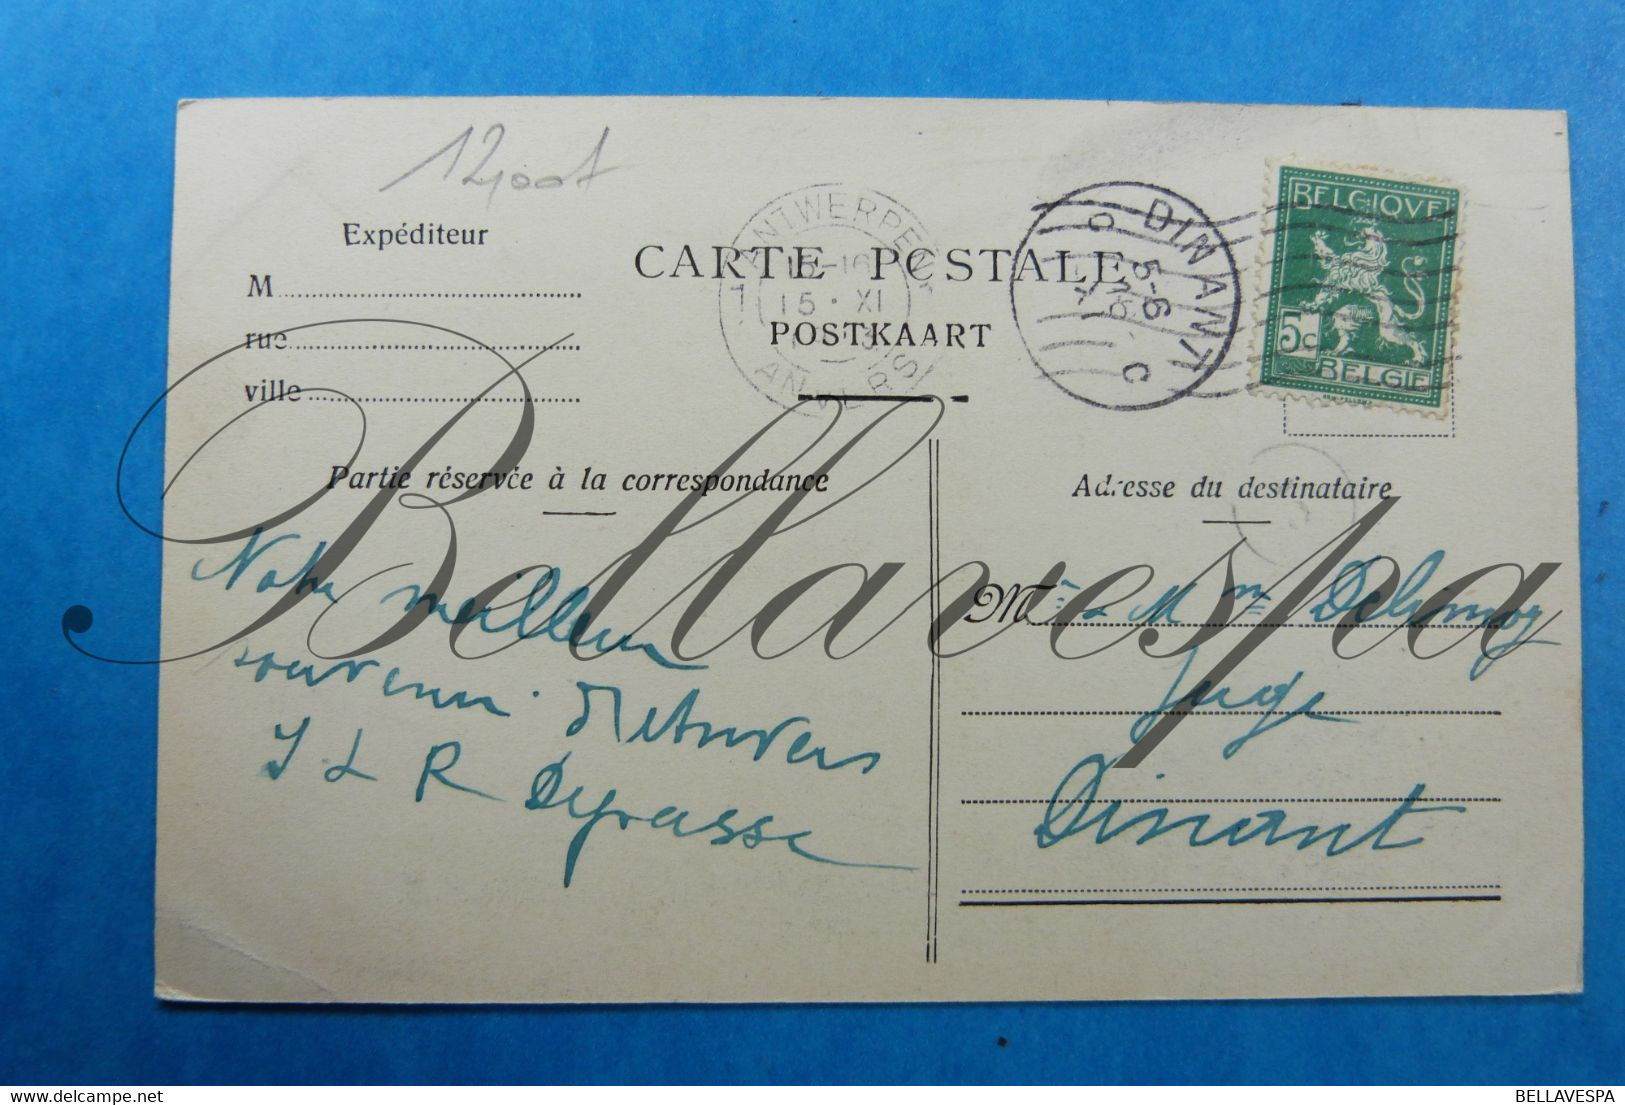 12,00
Expéditeur
M
rue
ville
CARTE POSTALE
POSTKAART
ANTWERPEN
15-16
15 · XI
ANVERS
DINANT
5-6
C
BELGIQUE
5c
BELGIË
Partie réservée à la correspondance
Adresse du destinataire
Notre meilleur
souvenir d'Anvers
J L R
M & Mme
Juge
Dinant
Bellavespa
delcampe.net
BELLAVESPA